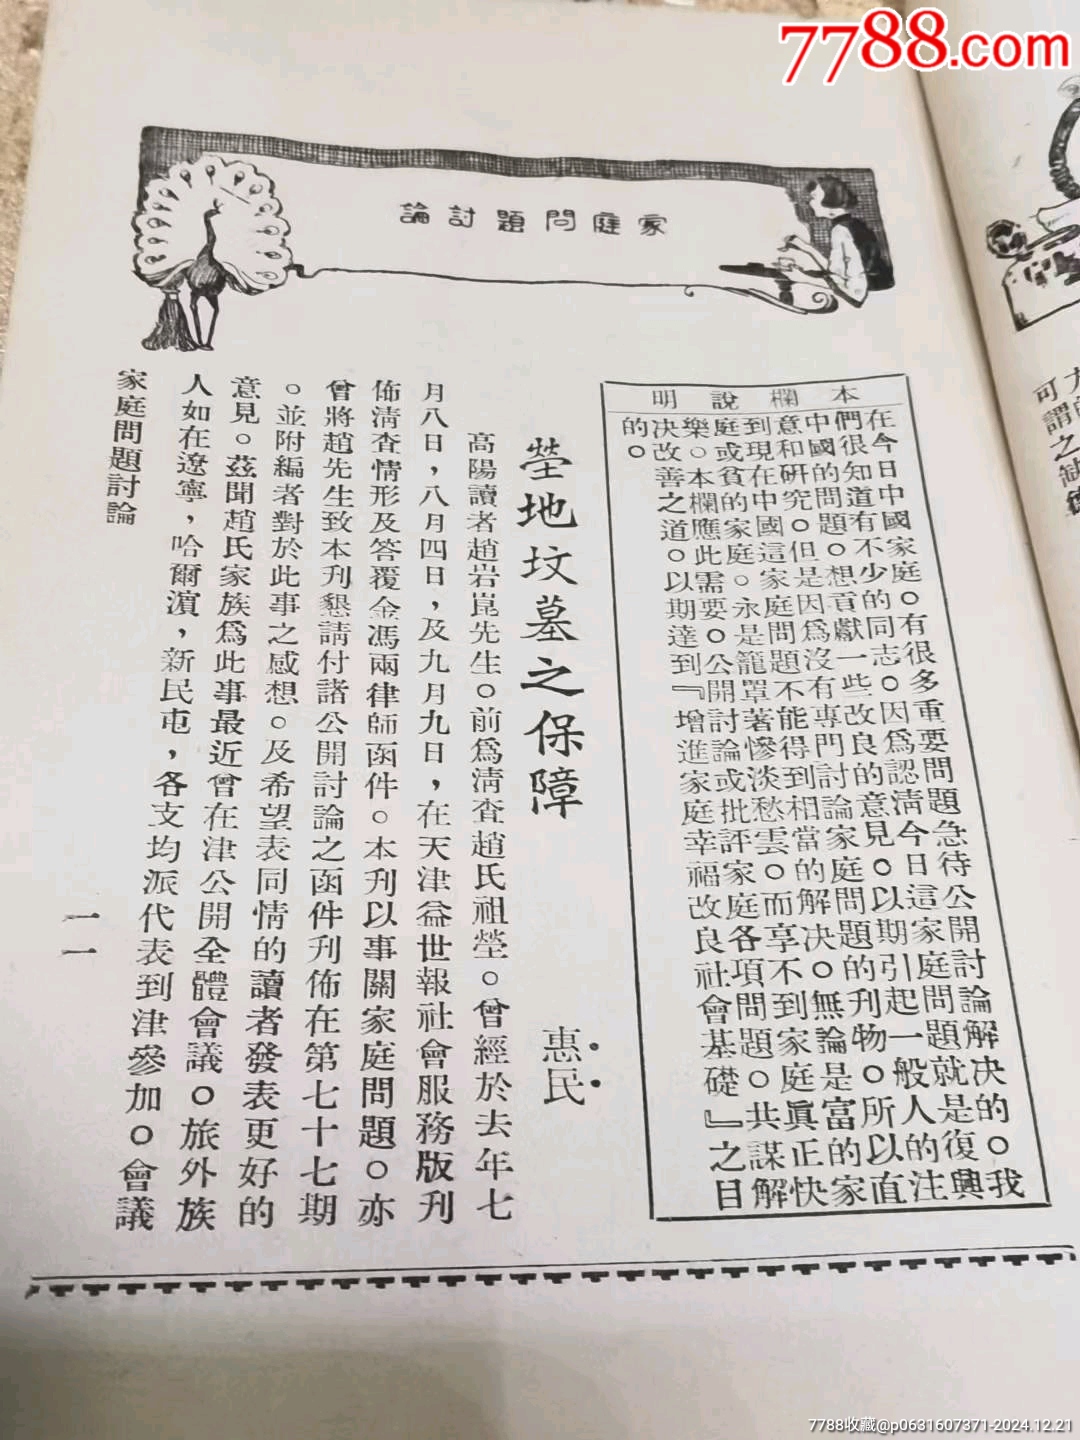 7788.com
家庭問題討論
本欄說明
在今日中國家庭。有很多重要問題急待公開討論解決的。我
們很知道有不少的同志。因爲認清今日這家庭問題就是復興
中國的問題。想貢獻一些改良的意見。以期引起一般人的注
意和研究。但是因爲沒有專門討論家庭問題的刊物。所以直
到現在中國這家庭問題不能得到相當的解決。無論是富的家
庭或貧的家庭。永是籠罩著慘淡愁雲。而享不到家庭眞正快
樂。本欄應此需要。公開討論或批評家庭各項問題。共謀解
決改善之道。以期達到『增進家庭幸福改良社會基礎』之目
的。
塋地坟墓之保障
惠民
高陽讀者趙岩崑先生。前爲淸查趙氏祖塋。曾經於去年七
月八日，八月四日，及九月九日，在天津益世報社會服務版刊
佈淸查情形及答覆金馮兩律師函件。本刊以事關家庭問題。亦
曾將趙先生致本刊懇請付諸公開討論之函件刊佈在第七十七期
。並附編者對於此事之感想。及希望表同情的讀者發表更好的
意見。茲聞趙氏家族爲此事最近曾在津公開全體會議。旅外族
人如在遼寧，哈爾濱，新民屯，各支均派代表到津參加。會議
家庭問題討論
一一
可謂之缺
7788收藏@p0631607371-2024.12.21